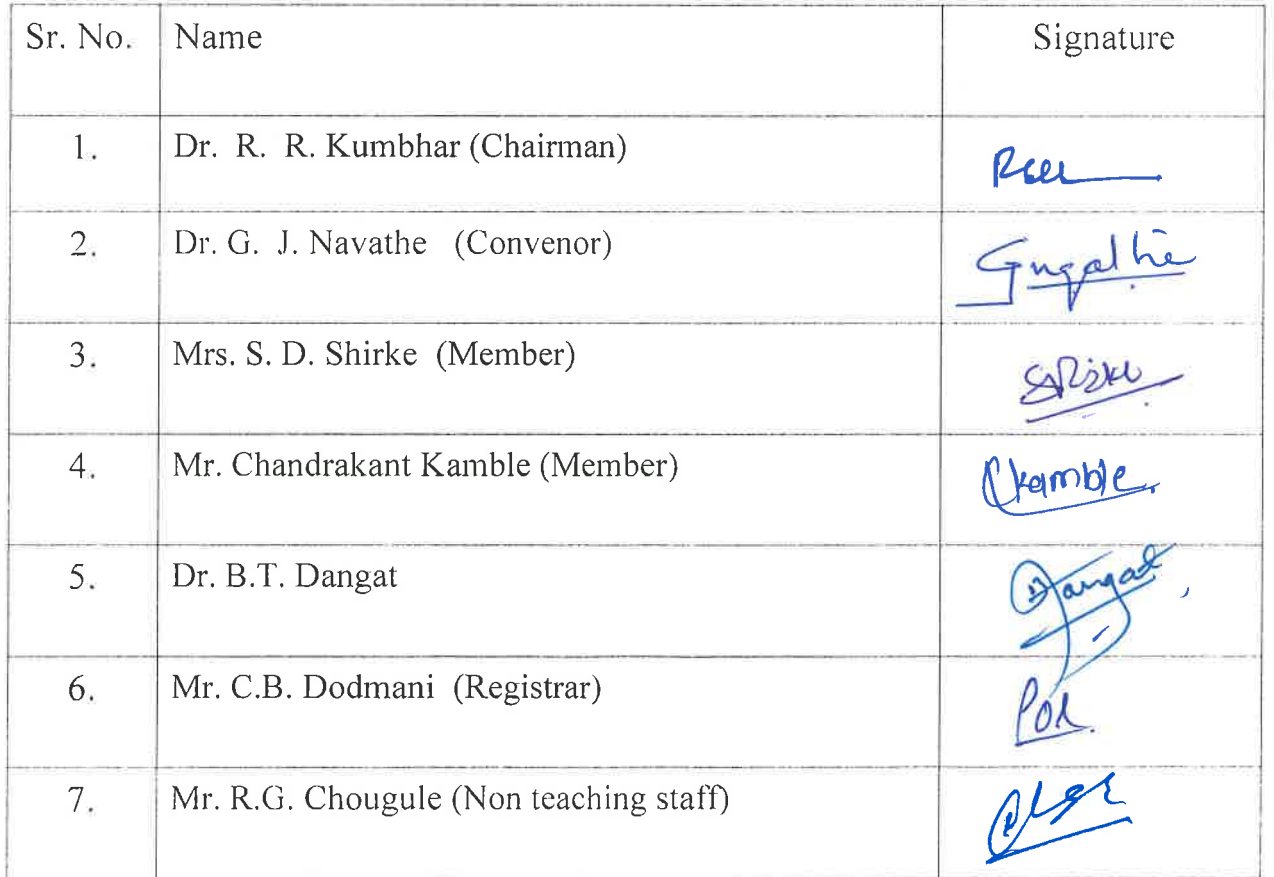 Sr. No. Name Signature
1. Dr. R. R. Kumbhar (Chairman)
2. Dr. G. J. Navathe (Convenor)
3. Mrs. S. D. Shirke (Member)
4. Mr. Chandrakant Kamble (Member) Ckamble
5. Dr. B.T. Dangat Dangat
6. Mr. C.B. Dodmani (Registrar)
7. Mr. R.G. Chougule (Non teaching staff)